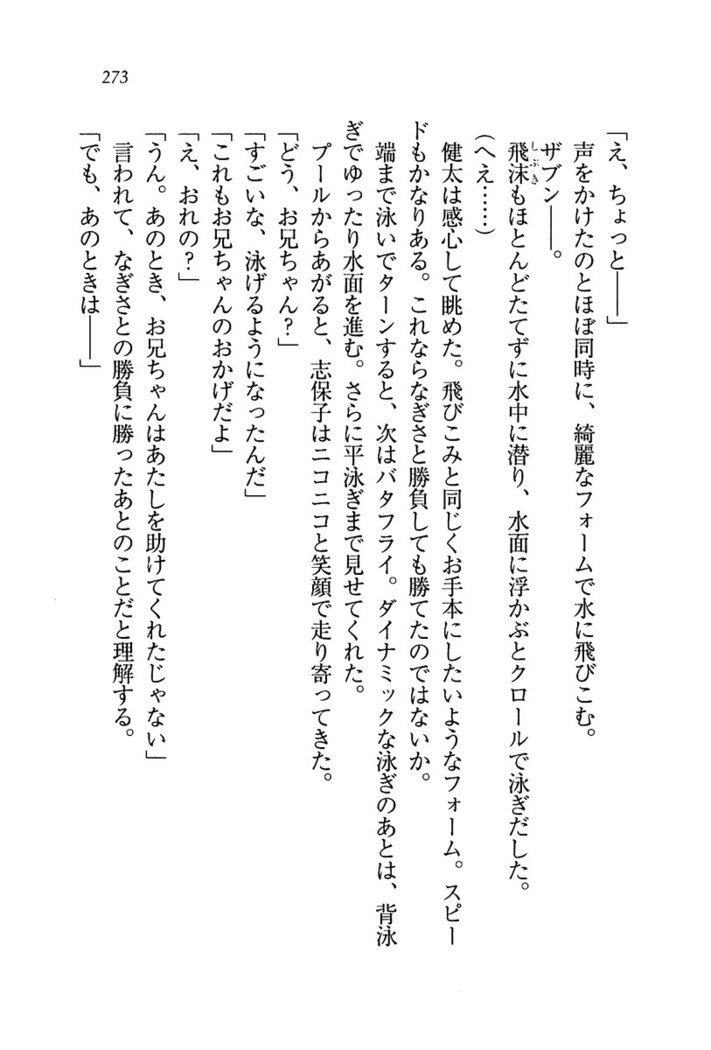 273
「え、ちょっと――」
声をかけたのとほぼ同時に、綺麗なフォームで水に飛びこむ。
ザブン――。
飛沫もほとんどたてずに水中に潜り、水面に浮かぶとクロールで泳ぎだした。
しぶき
(へえ……)
健太は感心して眺めた。飛びこみと同じくお手本にしたいようなフォーム。スピー
ドもかなりある。これならなぎさと勝負しても勝てたのではないか。
端まで泳いでターンすると、次はバタフライ。ダイナミックな泳ぎのあとは、背泳
ぎでゆったり水面を進む。さらに平泳ぎまで見せてくれた。
プールからあがると、志保子はニコニコと笑顔で走り寄ってきた。
「どう、お兄ちゃん?」
「すごいな、泳げるようになったんだ」
「これもお兄ちゃんのおかげだよ」
「え、おれの?」
「うん。あのとき、お兄ちゃんはあたしを助けてくれたじゃない」
言われて、なぎさとの勝負に勝ったあとのことだと理解する。
「でも、あのときは――」